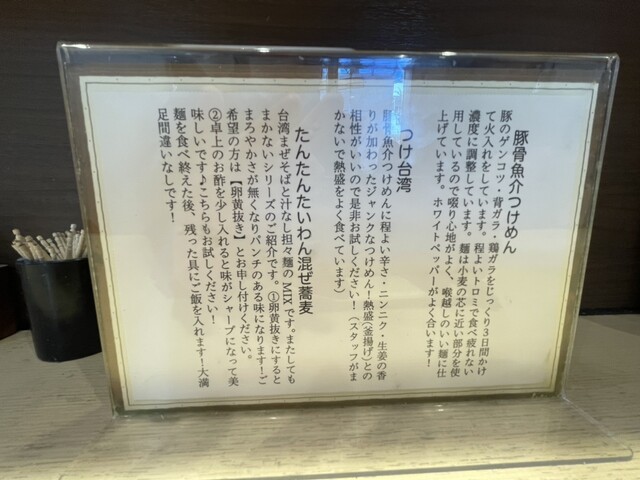 豚骨魚介つけめん
豚のゲンコツ・背ガラ・鶏ガラをじっくり3日間かけ
て火入れをしています。程よいトロミで食べ疲れない
濃度に調整しています。麺は小麦の芯に近い部分を使
用しているので啜り心地がよく、喉越しのいい麺に仕
上げています。ホワイトペッパーがよく合います！
つけ台湾
豚骨魚介つけめんに程よい辛さ・ニンニク・生姜の香
りが加わったジャンクなつけめん！熱盛(釜揚げ)との
相性がいいので是非お試しください！(スタッフがま
かないで熱盛をよく食べています)
たんたんたいわん混ぜ蕎麦
台湾まぜそばと汁なし担々麺のMIXです。またしても
まかないシリーズのご紹介です。①卵黄抜きにすると
まろやかさが無くなりパンチのある味になります！ご
希望の方は【卵黄抜き】とお申し付けください。
②卓上のお酢を少し入れると味がシャープになって美
味しいです♪こちらもお試しください！
麺を食べ終えた後、残った具にご飯を入れます！大満
足間違いなしです！